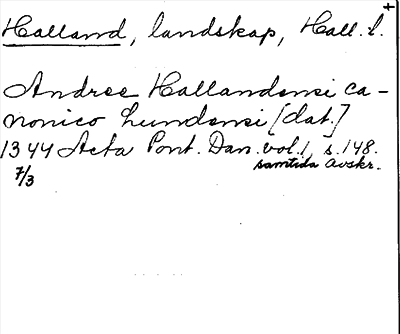 Halland, landskap, Hall. l. +
Andree Hallandensi ca-
nonico Lundensi [dat.]
1344 Acta Pont. Dan. vol. 1, s. 148.
7/3 samtida avskr.